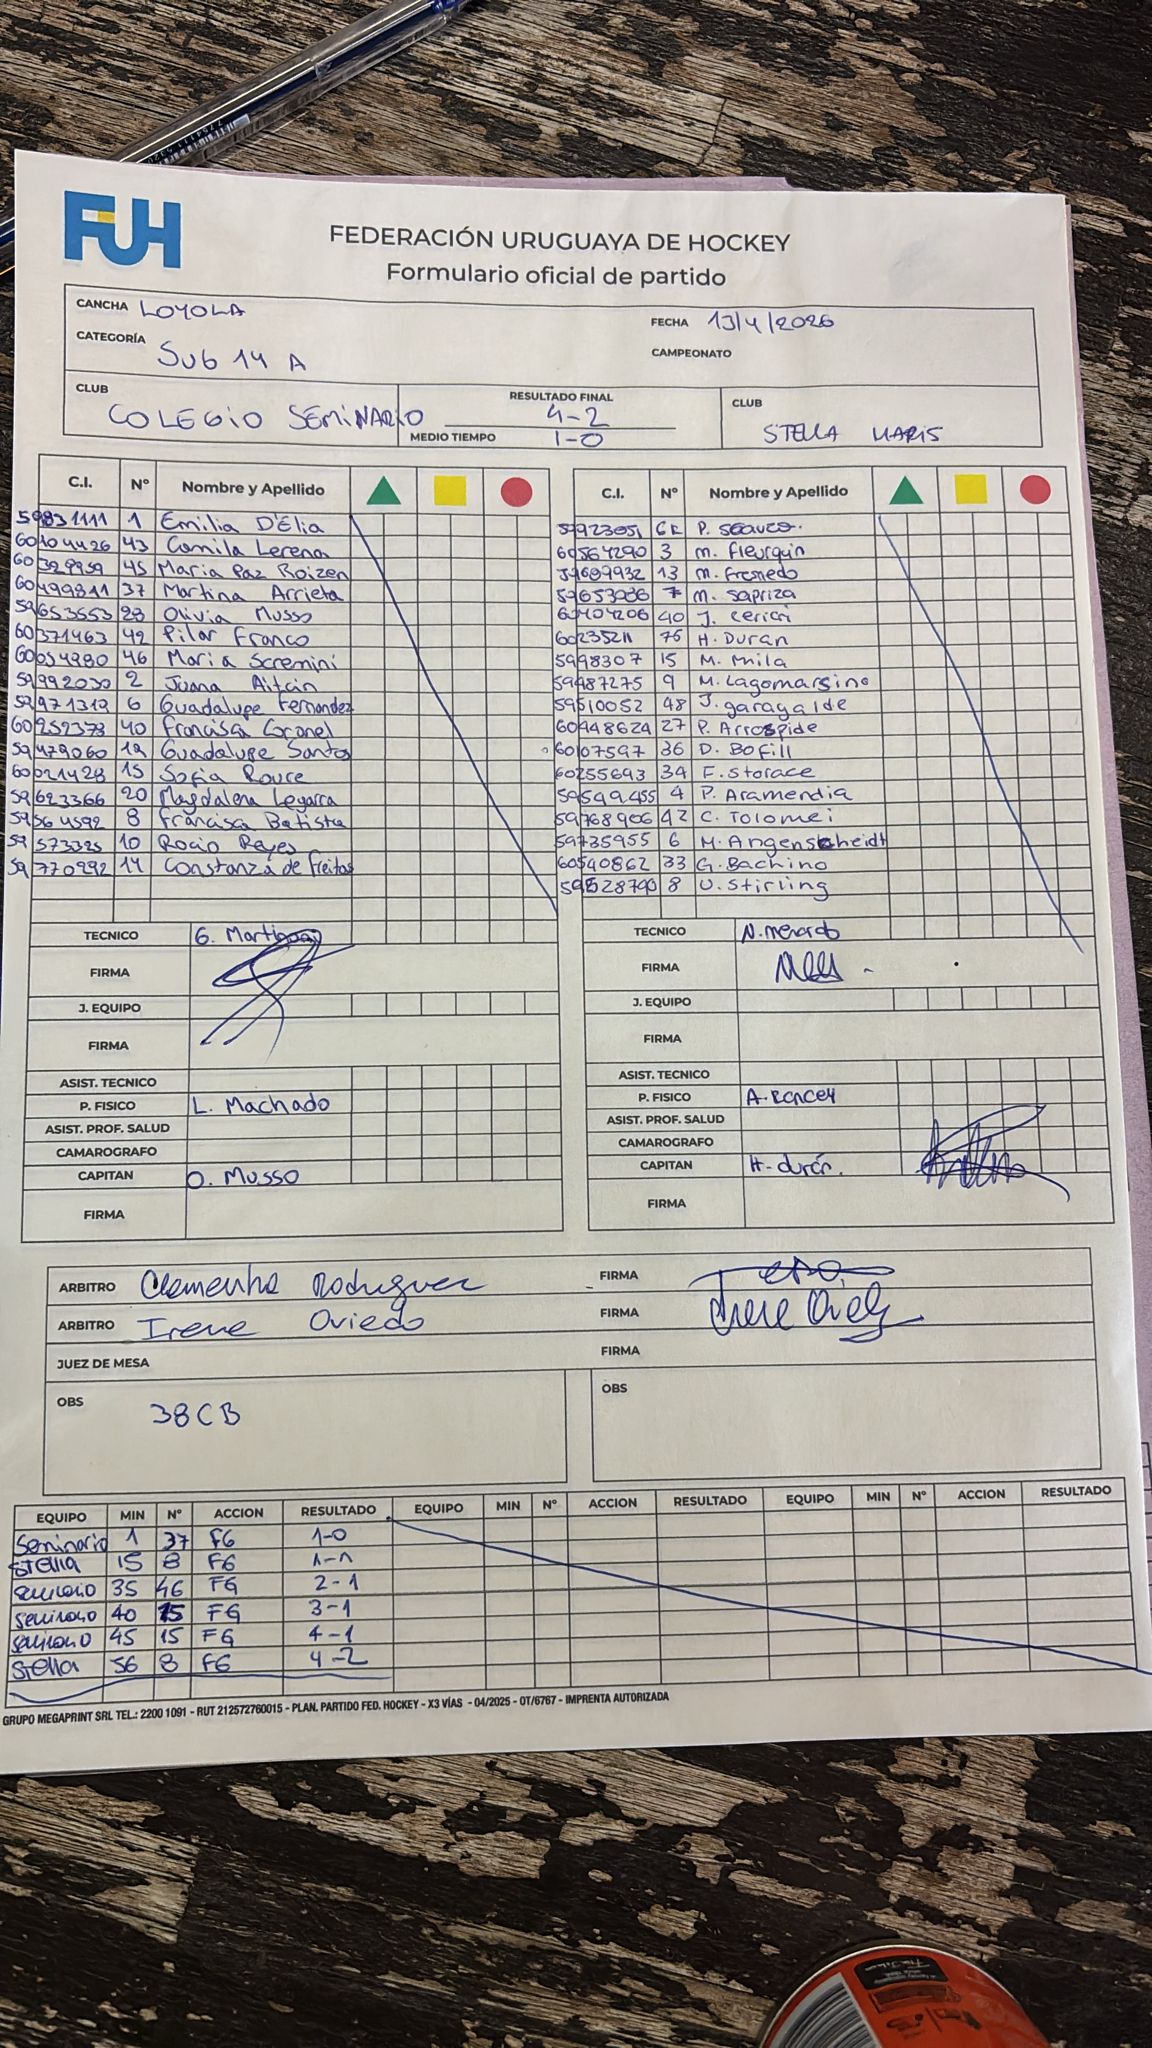 FUH
FEDERACIÓN URUGUAYA DE HOCKEY
Formulario oficial de partido
CANCHA LOYOLA
FECHA 13/4/2026
CATEGORÍA Sub 14 A
CAMPEONATO
CLUB COLEGIO SEMINARIO
RESULTADO FINAL 4-2
MEDIO TIEMPO 1-0
CLUB STELLA MARIS
C.I. Nº Nombre y Apellido
59831111 1 Emilia D'Elia
60104426 43 Camila Lerena
60329959 45 Maria Paz Roizen
60499811 37 Martina Arrieta
59653553 28 Olivia Musso
60371463 42 Pilar Franco
60054980 46 Maria Scremini
59992030 2 Juana Aitcin
59971312 6 Guadalupe Fernandez
60252373 40 Francisca Coronel
59479060 12 Guadalupe Santos
60021428 15 Sofia Rovre
59623366 20 Magdalena Legarra
59564592 8 Francisca Batista
59573325 10 Rocio Reyes
59770292 14 Constanza de Freitas
TECNICO G.
FIRMA
J. EQUIPO
FIRMA
ASIST. TECNICO
P. FISICO L. Machado
ASIST. PROF. SALUD
CAMAROGRAFO
CAPITAN O. Musso
FIRMA
C.I. Nº Nombre y Apellido
59923051 P.
60564290 3 M. Fleurquin
59689932 13 M. Fresnedo
59653086 7 M. Sapriza
60404206 40 J. Cerici
60235211 76 H. Duran
5998307 15 M. Mila
59487275 9 M. Lagomarsino
59510052 48 J. garagalde
60448624 27 P. Arrospide
60107597 36 D. Bofill
60255693 34 F. Storace
59549455 4 P. Aramendia
59768906 42 C. Tolomei
59735955 6 M. Angenscheidt
60540862 33 G. Bachino
59528790 8 U. Stirling
TECNICO N. Menardo
FIRMA
J. EQUIPO
FIRMA
ASIST. TECNICO
P. FISICO A.
ASIST. PROF. SALUD
CAMAROGRAFO
CAPITAN H. durán.
FIRMA
ARBITRO Rodriguez FIRMA
ARBITRO Irene Oviedo FIRMA Irene
JUEZ DE MESA FIRMA
OBS 38CB
OBS
EQUIPO MIN Nº ACCION RESULTADO EQUIPO MIN Nº ACCION RESULTADO EQUIPO MIN Nº ACCION RESULTADO
Seminario 1 37 FG 1-0
Stella 15 8 FG 1-1
Seminario 35 46 FG 2-1
Seminario 40 15 FG 3-1
Seminario 45 15 FG 4-1
Stella 56 8 FG 4-2
GRUPO MEGAPRINT SRL TEL.: 2200 1091 - RUT 212572760015 - PLAN. PARTIDO FED. HOCKEY - X3 VÍAS - 04/2025 - OT/6767 - IMPRENTA AUTORIZADA